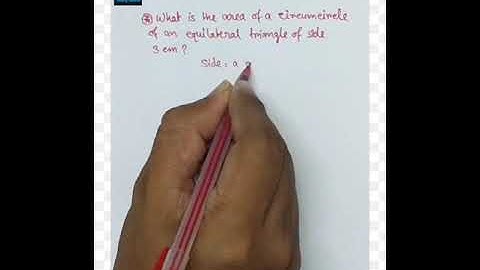 What is the area of a circumcircle
of an equilateral triangle of side
3 cm ?
Side = a